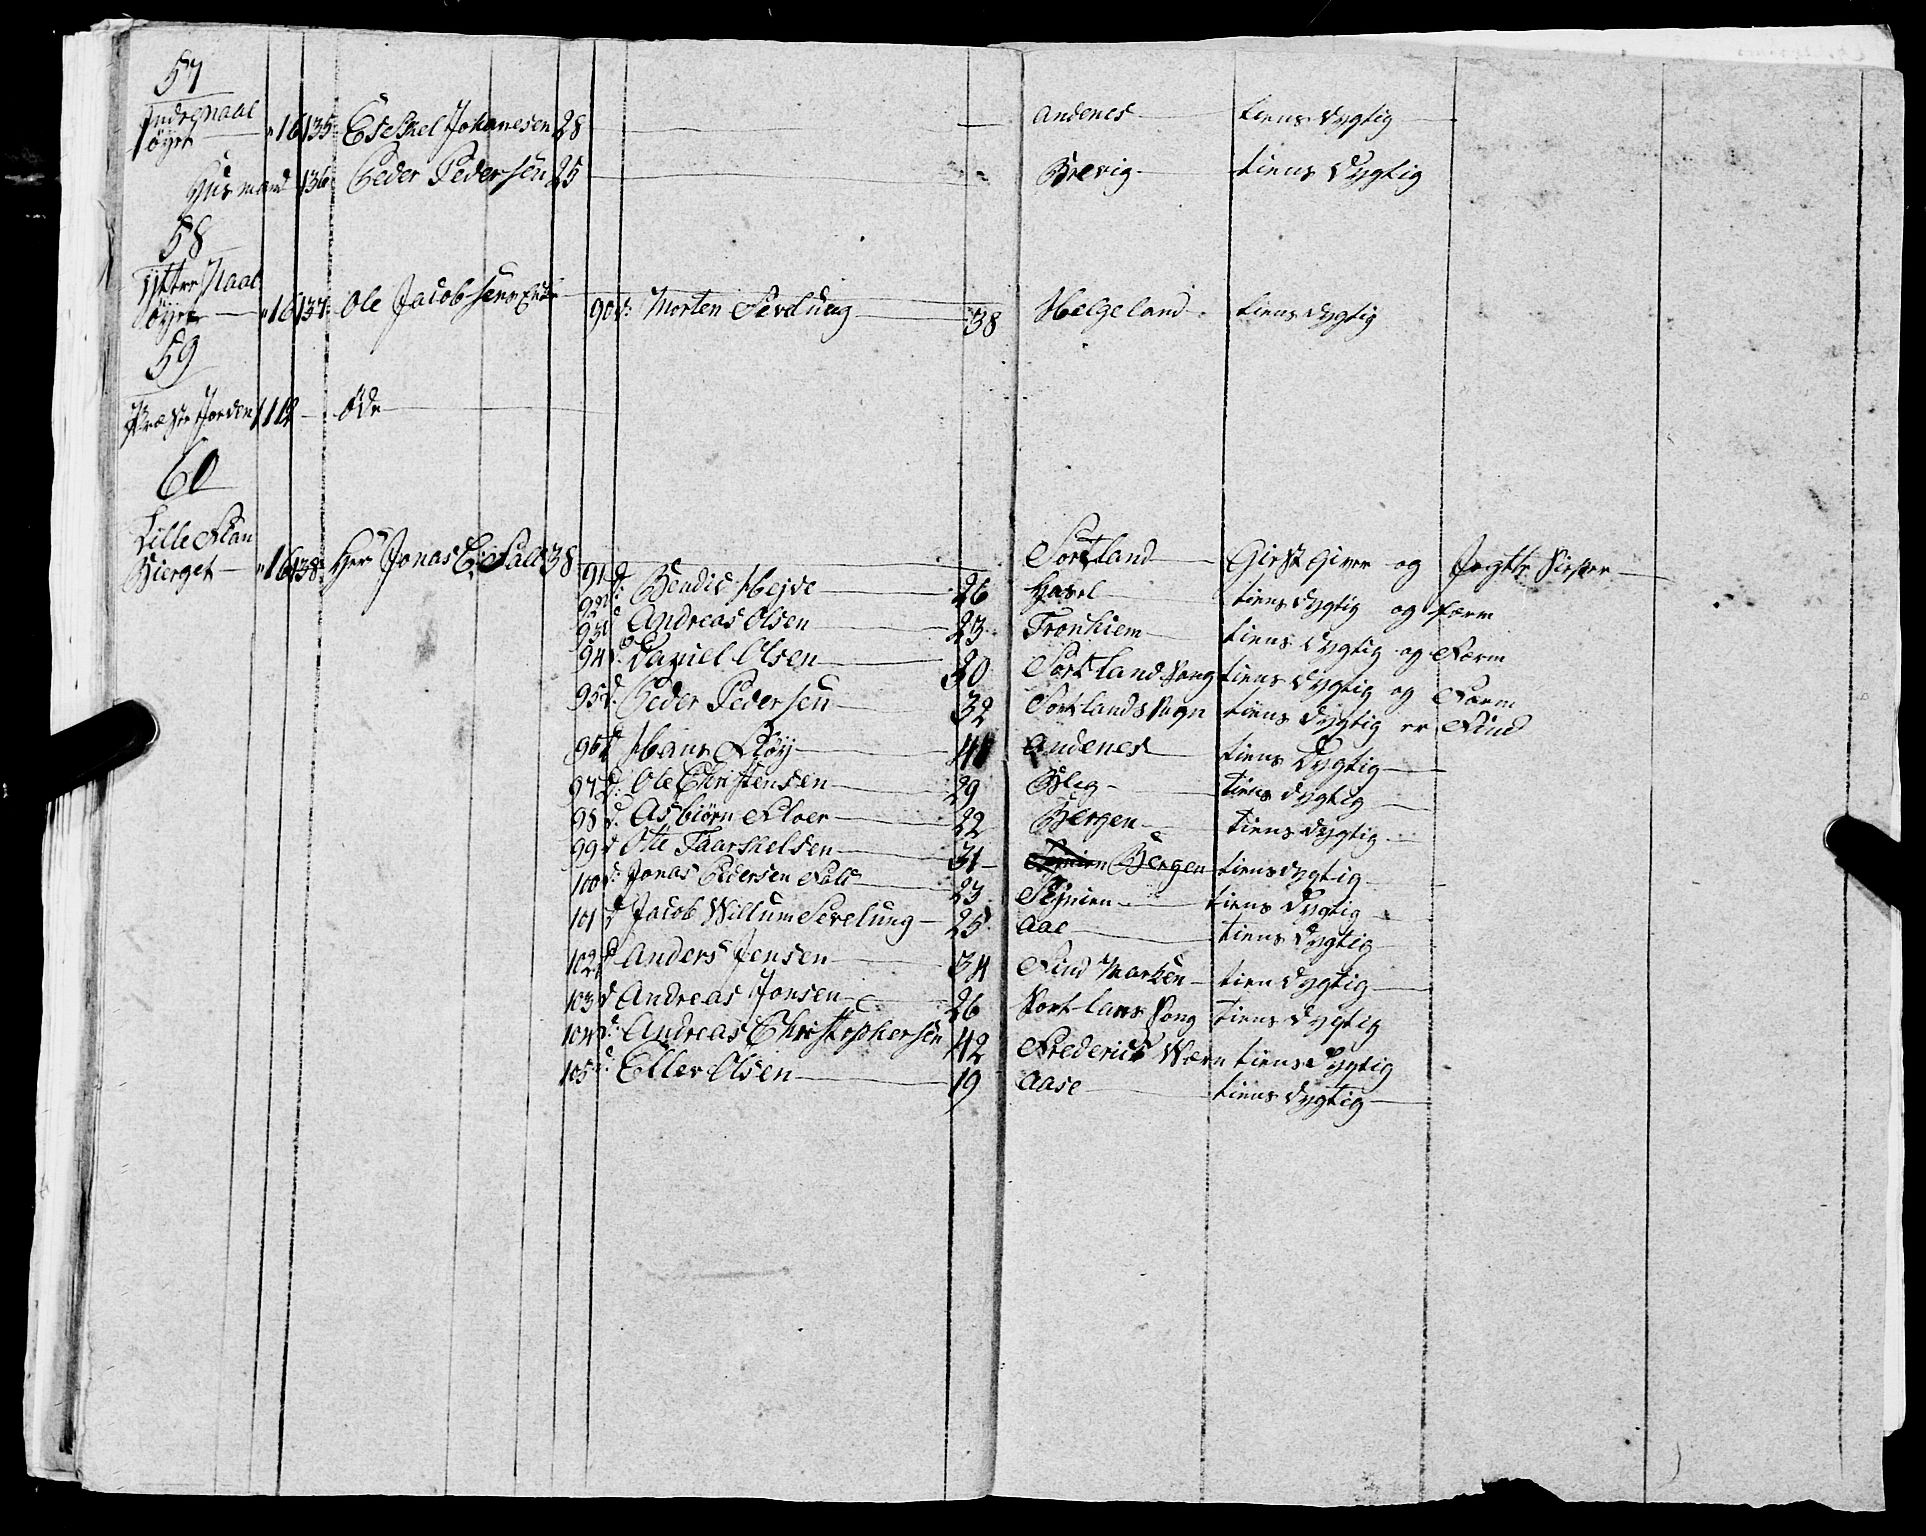 57
Indre Naal
øyet " 16 135 Eschel Johanesen 28 — Andenes — tiens dygtig
Husmand 136 Peder Pedersen 25 — Brevig — tiens dygtig
58
Ytter Naal
øyet — " 16 137 Ole Jacobsen 90 d: Morten Sevelung — 38 Helgeland tiens dygtig
59
Præste Jorden 1 12 — Øde
60
Lille Flan
Bierget — " 16 138 Herr Jonas C: Falc 38 — Sortland — Giest Giver og Jegtte Skipper
91 d: Bendis Hejde — 26 Hasel — tiens dygtig og færm
92 d: Andreas Olsen — 23 Tronhiem — tiens dygtig og Færm
93 d Daniel Olsen — 30 Sortland Song tiens dygtig og Færm
94 d: Peder Pedersen — 32 Sortlands Sogn tiens dygtig er Find
95 d.
96 d Hans Fløy — 41 Andenes — tiens dygtig
97 d: Ole Christensen — 29 Bleg — tiens dygtig
98 d. Asbiørn Floer — 22 Bergen — tiens dygtig
99 d Otte Taarskelsen — 31 Bergen tiens dygtig
100 d: Jonas Pedersen Falc — 23 Senien — tiens dygtig
101 d Jacob Willum Sevelung — 25 Aae — tiens dygtig
102 d Anders Jensen — 34 Find Marken — tien dygtig
103 d Andreas Jonsen — 26 Sort lans Song tiens dygtig
104 d: Andreas Christophersen 42 Friderics Wærn tiens dygtig
105 d: Eller Olsen — 19 Aase — tiens dygtig